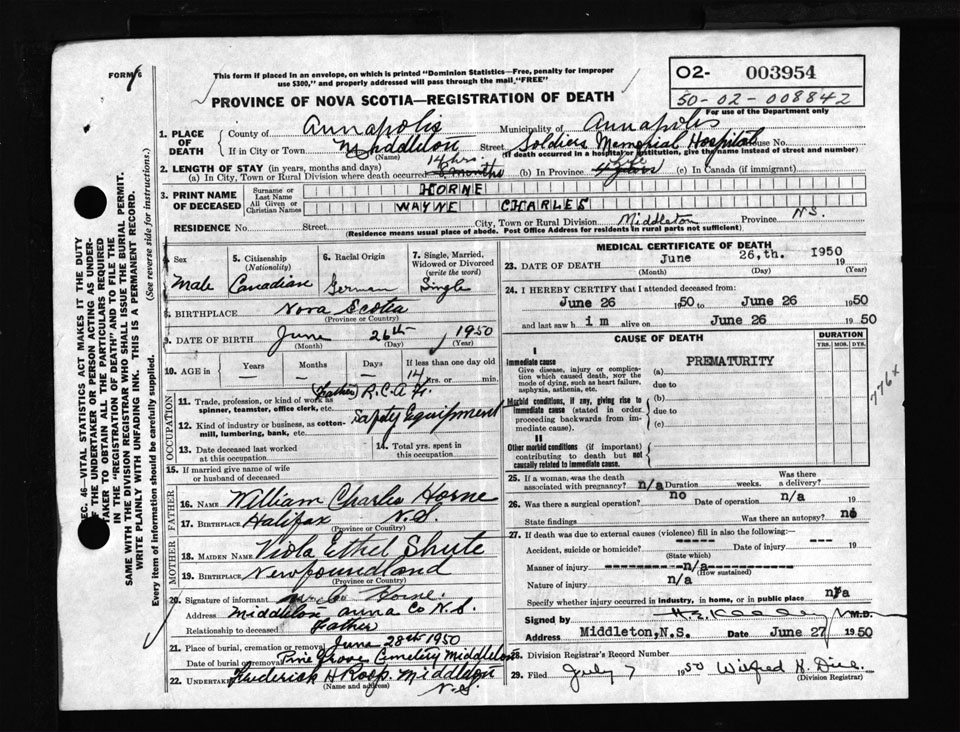 FORM 6
This form if placed in an envelope, on which is printed "Dominion Statistics—Free, penalty for improper
use $300," and properly addressed will pass through the mail "FREE"
O2- 003954
50-02-008842
For use of the Department only
PROVINCE OF NOVA SCOTIA—REGISTRATION OF DEATH
1. PLACE OF DEATH
County of Annapolis Municipality of Annapolis
If in City or Town Middleton Street Soldiers Memorial Hospital House No.
(Name) (If death occurred in a hospital or institution, give the name instead of street and number)
2. LENGTH OF STAY (in years, months and days)
(a) In City, Town or Rural Division where death occurred 14 hrs. months (b) In Province life (c) In Canada (if immigrant)
3. PRINT NAME OF DECEASED
Surname or Last Name HORNE
All Given or Christian Names WAYNE CHARLES
RESIDENCE No. Street City, Town or Rural Division Middleton Province N.S.
(Residence means usual place of abode. Post Office Address for residents in rural parts not sufficient)
4. Sex Male
5. Citizenship (Nationality) Canadian
6. Racial Origin German
7. Single, Married, Widowed or Divorced (write the word) Single
8. BIRTHPLACE Nova Scotia
(Province or Country)
9. DATE OF BIRTH June 26th 1950
(Month) (Day) (Year)
10. AGE in Years Months Days If less than one day old
14 hrs. or min.
OCCUPATION
11. Trade, profession, or kind of work as spinner, teamster, office clerk, etc. (Father) R.C.A.F.
12. Kind of industry or business, as cotton-mill, lumbering, bank, etc. Safety Equipment
13. Date deceased last worked at this occupation
14. Total yrs. spent in this occupation
15. If married give name of wife or husband of deceased
FATHER
16. NAME William Charles Horne
17. BIRTHPLACE Halifax N.S.
(Province or Country)
MOTHER
18. MAIDEN NAME Viola Ethel Shute
19. BIRTHPLACE Newfoundland
(Province or Country)
20. Signature of informant Horne.
Address Middleton Anna Co N.S.
Relationship to deceased Father
21. Place of burial, cremation or removal June 28th 1950
Date of burial or removal Pine Grove Cemetery Middleton
22. UNDERTAKER Frederick H Roop. Middleton N.S.
(Name and address)
MEDICAL CERTIFICATE OF DEATH
23. DATE OF DEATH June 26,th. 1950
(Month) (Day) 19 (Year)
24. I HEREBY CERTIFY that I attended deceased from:
June 26 1950 to June 26 1950
and last saw h im alive on June 26 1950
CAUSE OF DEATH
DURATION
YRS. MOS. DYS.
I
Immediate cause
Give disease, injury or complication which caused death, NOT the mode of dying, such as heart failure, asphyxia, asthenia, etc.
(a) PREMATURITY
due to
Morbid conditions, if any, giving rise to immediate cause (stated in order proceeding backwards from immediate cause).
(b)
due to
(c)
II
Other morbid conditions (if important) contributing to death but not causally related to immediate cause.
776x
25. If a woman, was the death associated with pregnancy? n/a Duration weeks. Was there a delivery?
26. Was there a surgical operation? no Date of operation n/a
State findings Was there an autopsy? no
27. If death was due to external causes (violence) fill in also the following:—
Accident, suicide or homicide? ---- Date of injury --- 19
(State which)
Manner of injury -----------n/a-----------
(How sustained)
Nature of injury n/a
Specify whether injury occurred in industry, in home, or in public place n/a
Signed by M.D.
Address Middleton,N.S. Date June 27 1950
28. Division Registrar's Record Number
29. Filed July 7 1950 Wilfred
(Division Registrar)
SEC. 46—VITAL STATISTICS ACT MAKES IT THE DUTY
OF THE UNDERTAKER OR PERSON ACTING AS UNDER-
TAKER TO OBTAIN ALL THE PARTICULARS REQUIRED
IN THE "REGISTRATION OF DEATH" AND TO FILE THE
SAME WITH THE DIVISION REGISTRAR WHO SHALL ISSUE THE BURIAL PERMIT.
WRITE PLAINLY WITH UNFADING INK. THIS IS A PERMANENT RECORD.
Every item of information should be carefully supplied. (See reverse side for instructions.)